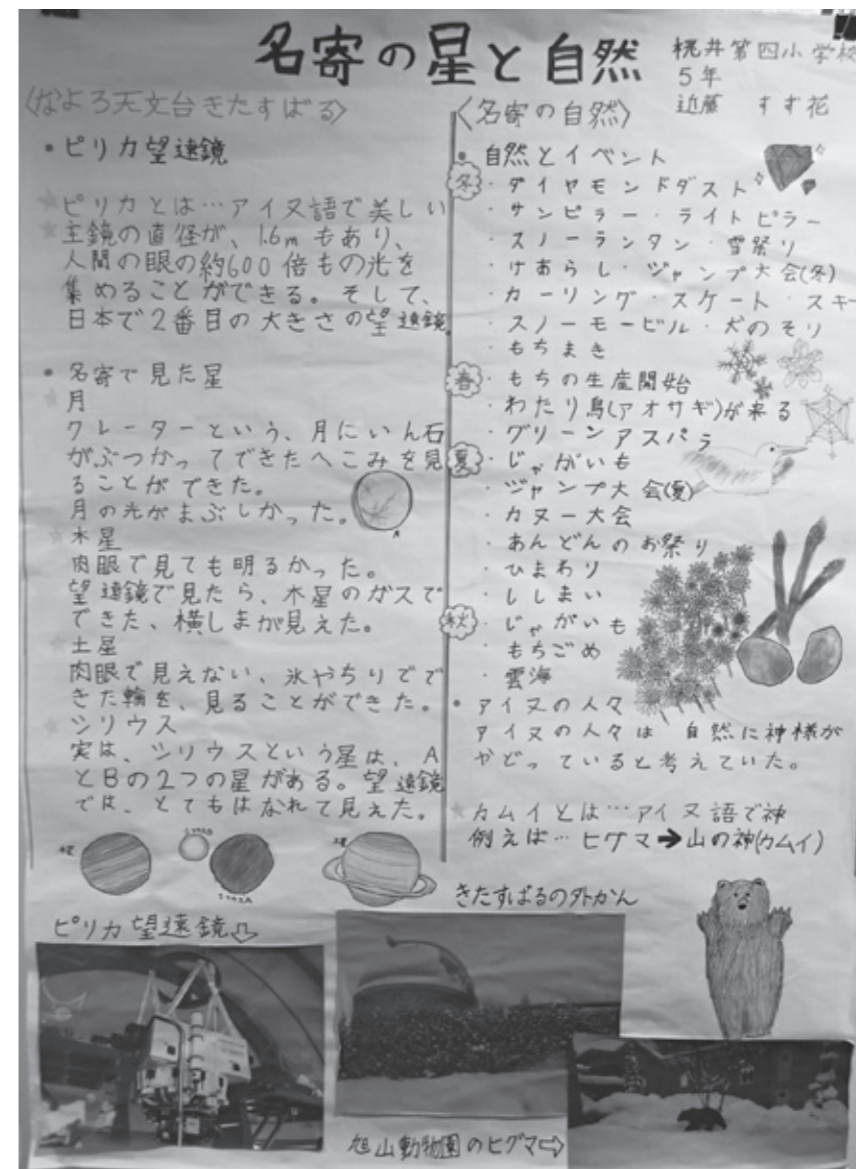 名寄の星と自然
桃井第四小学校
5年
近藤 すず花
〈なよろ天文台きたすばる〉
・ピリカ望遠鏡
★ピリカとは…アイヌ語で美しい
★主鏡の直径が、1.6mもあり、
人間の眼の約600倍もの光を
集めることができる。そして、
日本で2番目の大きさの望遠鏡。
・名寄で見た星
★月
クレーターという、月にいん石
がぶつかってできたへこみを見
ることができた。
月の光がまぶしかった。
★木星
肉眼で見ても明るかった。
望遠鏡で見たら、木星のガスで
できた、横しまが見えた。
★土星
肉眼で見えない、氷やちりでで
きた輪を、見ることができた。
★シリウス
実は、シリウスという星は、A
とBの2つの星がある。望遠鏡
では、とてもはなれて見えた。
〈名寄の自然〉
・自然とイベント
冬・ダイヤモンドダスト
・サンピラー・ライトピラー
・スノーランタン・雪祭り
・けあらし・ジャンプ大会(冬)
・カーリング・スケート・スキー
・スノーモービル・犬のそり
・もちまき
春・もちの生産開始
・わたり鳥(アオサギ)が来る
・グリーンアスパラ
夏・じゃがいも
・ジャンプ大会(夏)
・カヌー大会
・あんどんのお祭り
・ひまわり
・ししまい
秋・じゃがいも
・もちごめ
・雲海
・アイヌの人々
アイヌの人々は 自然に神様が
やどっていると考えていた。
★カムイとは…アイヌ語で神
例えば…ヒグマ➔山の神(カムイ)
きたすばるの外かん
ピリカ望遠鏡⇩
旭山動物園のヒグマ⇨